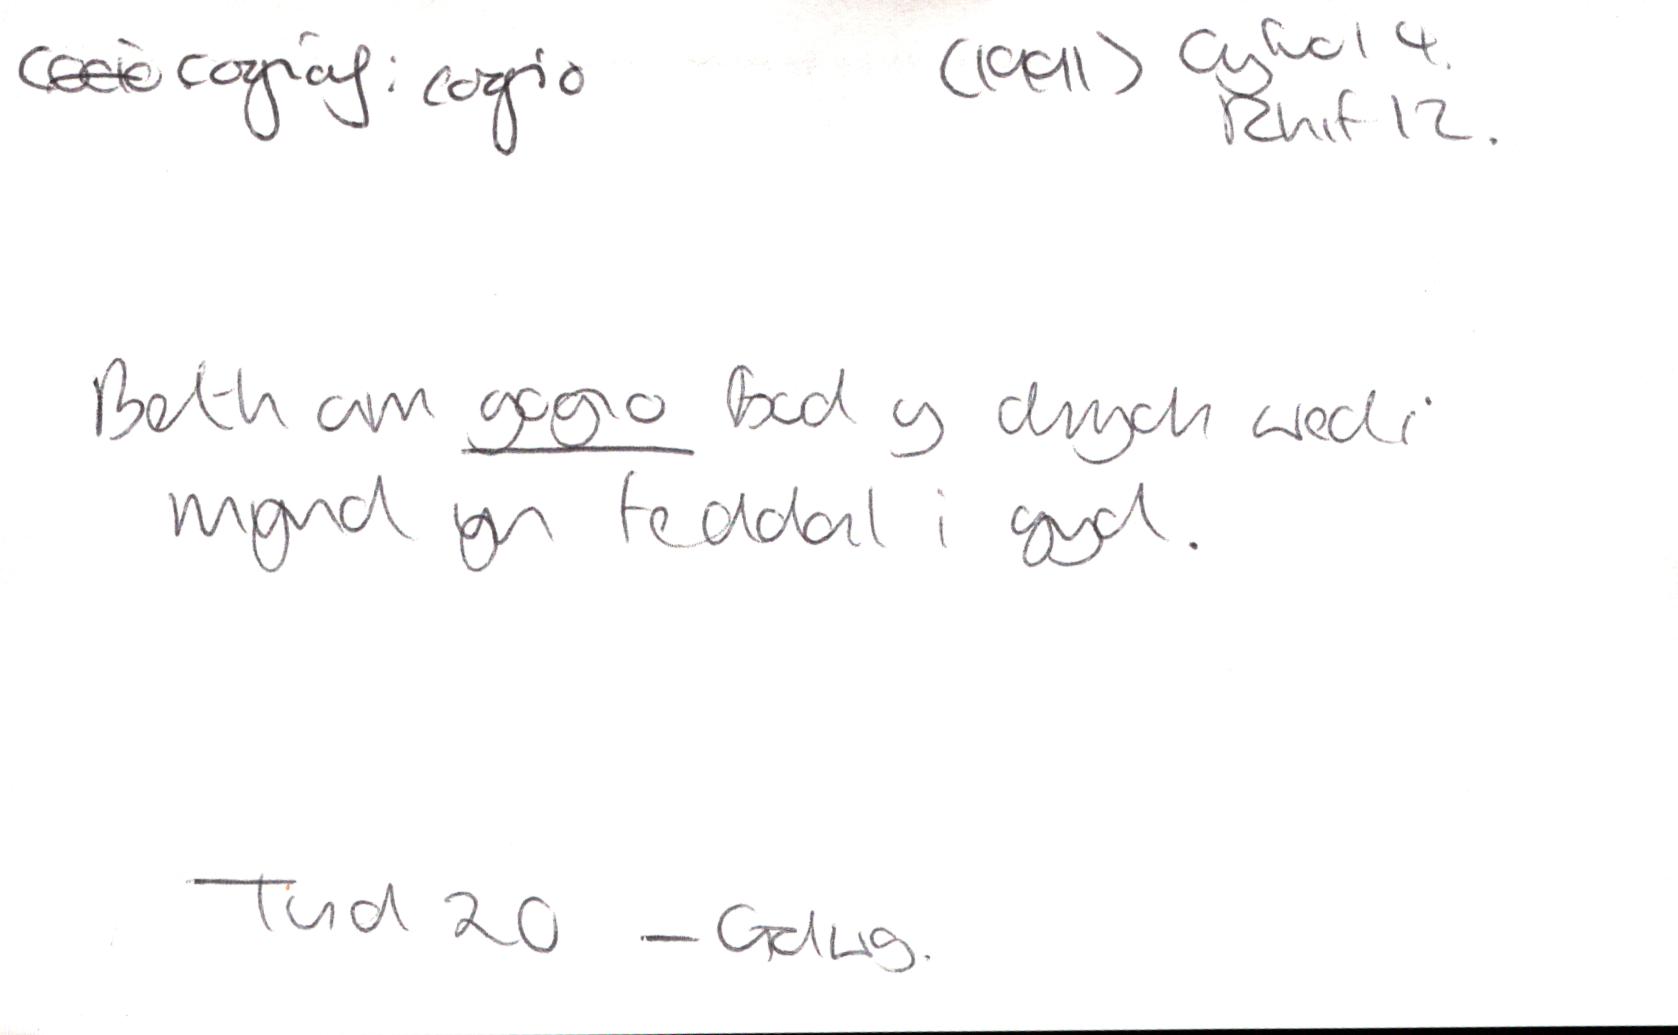 cogiaf: cogio (1991) Cyfrol 4.
Rhif 12.
Beth am gogio bod y drych wedi
mynd yn feddal i gyd.
Tud 20 – Golwg.